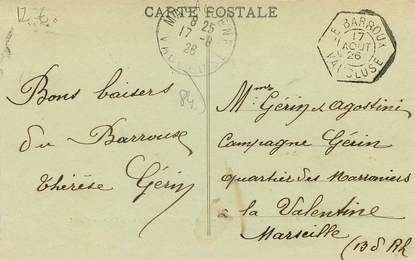 CARTE POSTALE
8 25
17 - 8
26
LE BARROUX
17
AOUT
26
VAUCLUSE
84
Bons baisers
du Barroux
Thérèse Gérin
Mmes Gérin et Agostini
Campagne Gérin
quartier des Marronniers
à la Valentine
Marseille (B d Rh